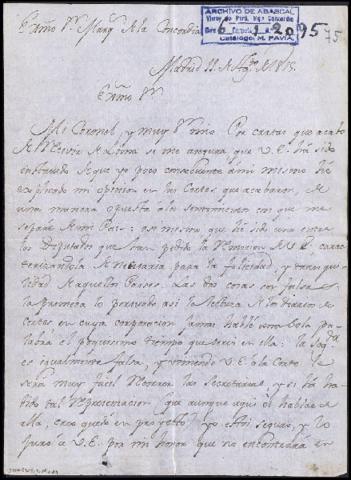 Exmo Sr Marqs de la Concordia
ARCHIVO DE ABASCAL
Virrey de Perú, Mqs Concordia
6 1 20 95 75
Catálogo, M. PAVIA
Madrid 22 de 1815
Exmo Sr
Mi Coronel, y muy Sr mio. Por cartas que acabo
de recivir de Lima se me asegura que V.E. ha sido
informado de que yo poco consecuente ami mismo he
explicado mi opinion en las Cortes que acabaron, de
una manera opuesta a los sentimientos con que me
separé de mi Pais: asi mismo que he sido uno entre
los Diputados que han pedido la remocion de V.E. carac
terizandola de necesaria para la felicidad, y tranqui
lidad de aquellos Paises. Las dos cosas son falsas
la primera lo persuade asi la lectura de los diarios de
Cortes en cuya corporacion jamas hablé una sola pa
labra el poquisimo tiempo que serví en ella: la segda
es igualmente falsa, y viniendo V.E. a la Corte le
será muy facil de las Secretarias, y si ha ha
bido tal representacion que aunque aqui se hablaba de
ella, creo quedó en proyecto, yo estoi seguro, y lo
juro a V.E. por mi honor que no encontrará en